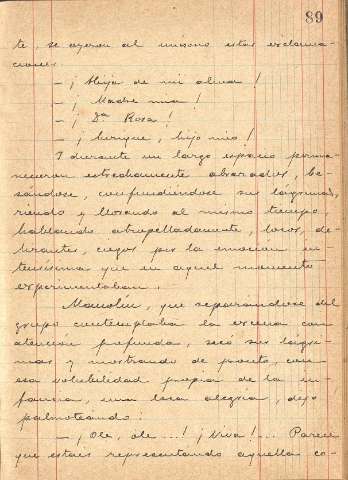 89
te, se oyeron al unísono estas exclama-
ciones
- ¡Hija de mi alma!
- ¡Madre mia!
- ¡Dª Rosa!
- ¡Enrique, hijo mio!
I durante un largo espacio perma-
necieron estrechamente abrazados, be-
sándose, confundiéndose sus lágrimas,
riendo y llorando al mismo tiempo,
hablando atropelladamente, locos, de-
lirantes, ciegos por la emoción in-
tensísima que en aquel momento
experimentaban.
Manolín, que separándose del
grupo contemplaba la escena con
atención profunda, secó sus lágri-
mas y mostrando de pronto, con
esa volubilidad propia de la in-
fancia, una loca alegria, dijo
palmoteando:
- ¡Ole, ole...! ¡Viva!... Parece
que estais representando aquella co-